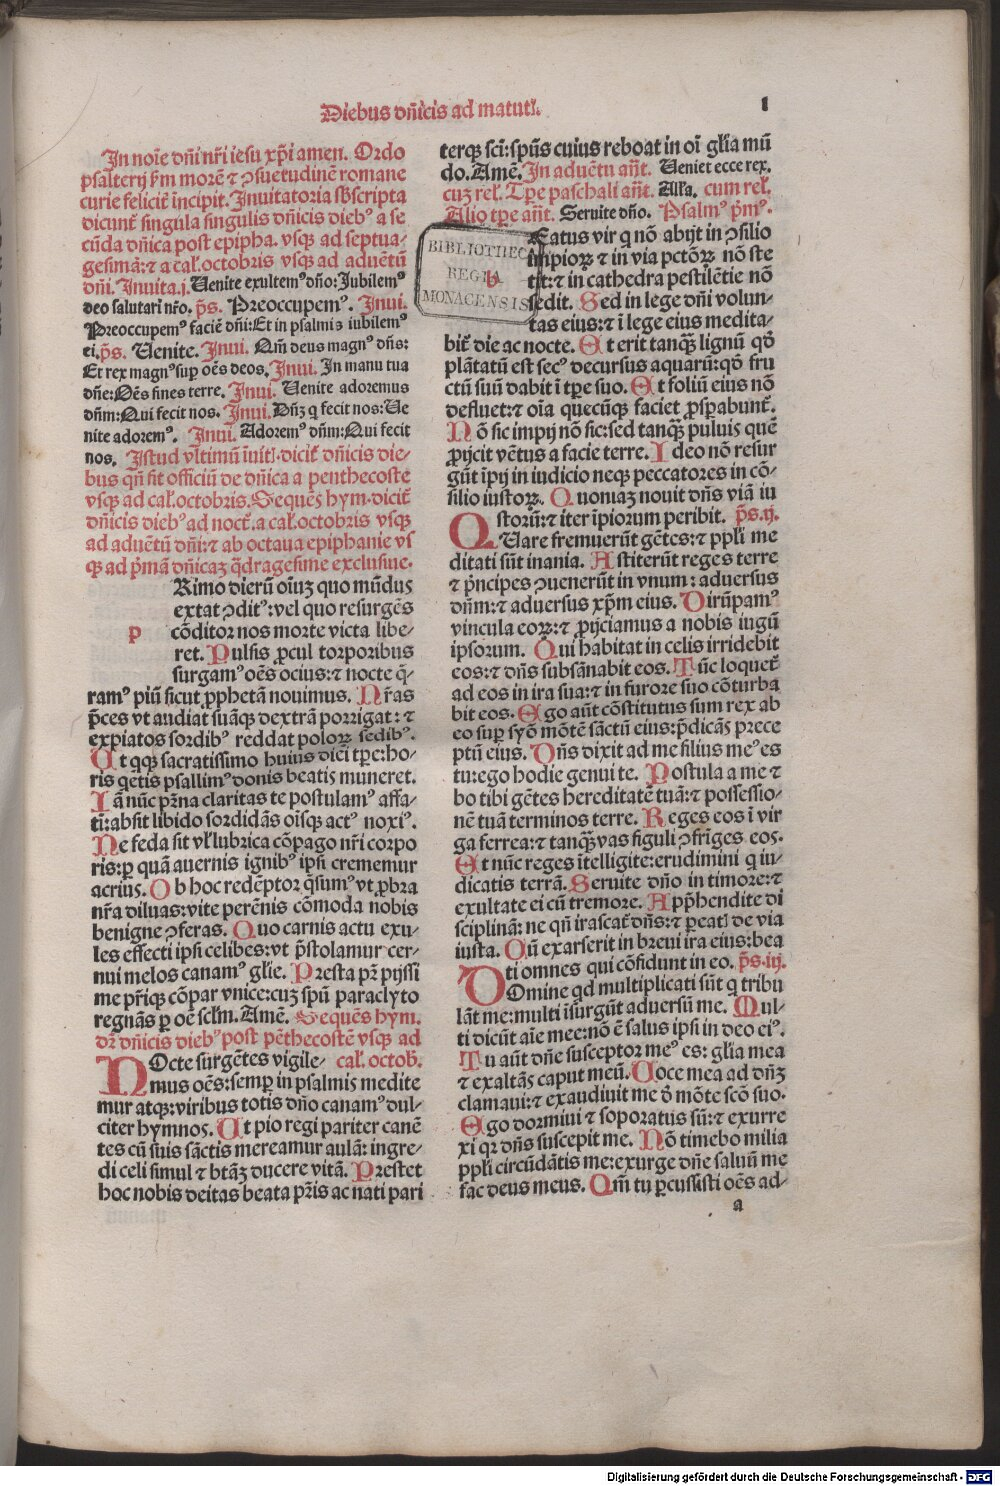 Diebus dñicis ad matutĩ. 1
In noĩe dñi nr̃i iesu xp̃i amen. Ordo
psalterij ẜm morẽ ⁊ ↄsuetudinẽ romane
curie felicit̃ incipit. Inuitatoria sb̃scripta
dicunt̃ singula singulis dñicis diebꝰ a se
cũda dñica post epipha. vsq̃ ad septua⸗
gesimã:⁊ a cał.octobris vsq̃ ad aduẽtũ
dñi. Inuita.j. Uenite exultemꝰ dño:Jubilemꝰ
deo salutari nr̃o. p̃s. Preoccupemꝰ. Inui.
Preoccupemꝰ faciẽ dñi:Et in psalmis iubilemꝰ
ei.p̃s. Uenite. Inui. Qm̃ deus magnꝰ dñs:
Et rex magnꝰ sup oẽs deos. Inui. In manu tua
dñe:Oẽs fines terre. Inui. Uenite adoremus
dñm:Qui fecit nos. Inui. Dñʒ q fecit nos:Ue
nite adoremꝰ. Inui. Adoremꝰ dñm:Qui fecit
nos. Istud vltimũ inuit̃.dicit̃ dñicis die⸗
bus qñ fit officiũ de dñica a penthecoste
vsq̃ ad cał.octobris. Sequẽs hym.dicit̃
dñicis diebꝰ ad noct̃.a cał.octobris vsq̃
ad aduẽtũ dñi:⁊ ab octaua epiphanie vs
q̃ ad p̃mã dñicaʒ q̃dragesime exclusiue.
p Rimo dierũ oĩuʒ quo mũdus
extat ↄditꝰ:vel quo resurgẽs
cõditor nos morte victa libe⸗
ret. Pulsis ꝓcul torporibus
surgamꝰ oẽs ocius:⁊ nocte q̃
ramꝰ piũ sicut ꝓphetã nouimus. Nr̃as
p̃ces vt audiat suãq̃ dextrã porrigat:⁊
expiatos sordibꝰ reddat poloꝝ sedibꝰ.
Ut qq̃ sacratissimo huius diei tp̃e:ho⸗
ris q̃etis psallimꝰ donis beatis muneret.
Iã nũc pr̃na claritas te postulamꝰ affa⸗
tĩ:absit libido sordidãs oĩsq̃ actꝰ noxiꝰ.
Ne feda sit vł lubrica cõpago nr̃i corpo
ris:ꝑ quã auernis ignibꝰ ipsi crememur
acriꝰ. Ob hoc redẽptor q̃sumꝰ vt ꝓbra
nr̃a diluas:vite perẽnis cõmoda nobis
benigne ↄferas. Quo carnis actu exu⸗
les effecti ipsi celibes:vt p̃stolamur cer⸗
nui melos canamꝰ glie. Presta pr̃ pijssi
me pr̃iq̃ cõpar vnice:cuʒ spũ paraclyto
regnãs ꝑ oẽ scl̃m.Amẽ. Sequẽs hym.
dr̃ dñicis diebꝰ post pẽthecostẽ vsq̃ ad
cał. octob̃.
NOcte surgẽtes vigile⸗
mus oẽs:semꝑ in psalmis medite
mur atq̃:viribus totis dño canamꝰ dul⸗
citer hymnos. Ut pio regi pariter canẽ
tes cũ suis sãctis mereamur aulã: ingre⸗
di celi simul ⁊ btãʒ ducere vitã. Prestet
hoc nobis deitas beata pr̃is ac nati pari
terq̃ sc̃i:spũs cuius reboat in oĩ gl̃ia mũ
do.Amẽ. In aduẽtu añt. Ueniet ecce rex.
cuʒ rel̃. Tp̃e paschali añt. All̃a. cum rel̃.
Alio tp̃e añt. Seruite dño. Psalmꝰ p̃mꝰ.
BIBLIOTHECA
REGIA
MONACENSIS
b Eatus vir q nõ abijt in ↄsilio
impioꝝ ⁊ in via pctõꝝ nõ ste
tit:⁊ in cathedra pestilẽtie nõ
sedit. Sed in lege dñi volun⸗
tas eius:⁊ ĩ lege eius medita⸗
bit̃ die ac nocte. Et erit tanq̃ʒ lignũ qð
plãtatũ est secꝰ decursus aquarũ:qð fru
ctũ suũ dabit ĩ tp̃e suo. Et foliũ eius nõ
defluet:⁊ oĩa quecũq̃ faciet ꝓsꝑabunt̃.
Nõ sic impij nõ sic:sed tanq̃ʒ puluis quẽ
ꝓijcit vẽtus a facie terre. Ideo nõ resur
gũt ĩpij in iudicio neq̃ peccatores in cõ⸗
silio iustoꝝ. Quoniaʒ nouit dñs viã iu
storũ:⁊ iter ĩpiorum peribit. p̃s.ij.
QUare fremuerũt gẽtes:⁊ ppl̃i me
ditati sũt inania. Astiterũt reges terre
⁊ p̃ncipes ↄuenerũt in vnum: aduersus
dñm:⁊ aduersus xp̃m eius. Dirũpamꝰ
vincula eoꝝ:⁊ ꝓijciamus a nobis iugũ
ipsorum. Qui habitat in celis irridebit
eos:⁊ dñs subsãnabit eos. Tũc loquet̃
ad eos in ira sua:⁊ in furore suo cõturba
bit eos. Ego aũt cõstitutus sum rex ab
eo suꝑ syõ mõtẽ sãctũ eius:p̃dicãs prece
ptũ eius. Dñs dixit ad me filius meꝰ es
tu:ego hodie genui te. Postula a me ⁊
bo tibi gẽtes hereditatẽ tuã:⁊ possessio⸗
nẽ tuã terminos terre. Reges eos ĩ vir
ga ferrea:⁊ tanq̃ʒ vas figuli ↄfrĩges eos.
Et nũc reges ĩtelligite:erudimini q iu⸗
dicatis terrã. Seruite dño in timore:⁊
exultate ei cũ tremore. Appħendite di
sciplinã: ne qñ irascat̃ dñs:⁊ ꝑeatĩ de via
iusta. Cũ exarserit in breui ira eius:bea
ti omnes qui cõfidunt in eo. p̃s.iij.
DOmine qd multiplicati sũt q tribu
lãt me:multi ĩsurgũt aduersũ me. Mul⸗
ti dicũt aĩe mee:nõ ẽ salus ipsi in deo eiꝰ.
Tu aũt dñe susceptor meꝰ es: gl̃ia mea
⁊ exaltãs caput meũ. Uoce mea ad dñʒ
clamaui:⁊ exaudiuit me ð mõte scõ suo.
Ego dormiui ⁊ soporatus sũ:⁊ exurre
xi qr dñs suscepit me. Nõ timebo milia
ppl̃i circũdãtis me:exurge dñe saluũ me
fac deus meus. Qm̃ tu ꝑcussisti oẽs ad⸗
a
Digitalisierung gefördert durch die Deutsche Forschungsgemeinschaft - DFG